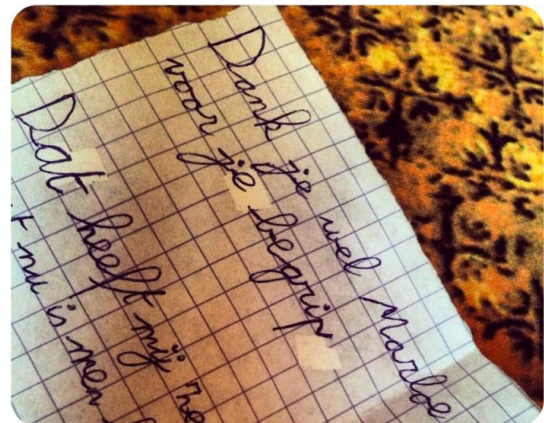 Dank je wel Marloe
voor je begrip
Dat heeft mij
nu is